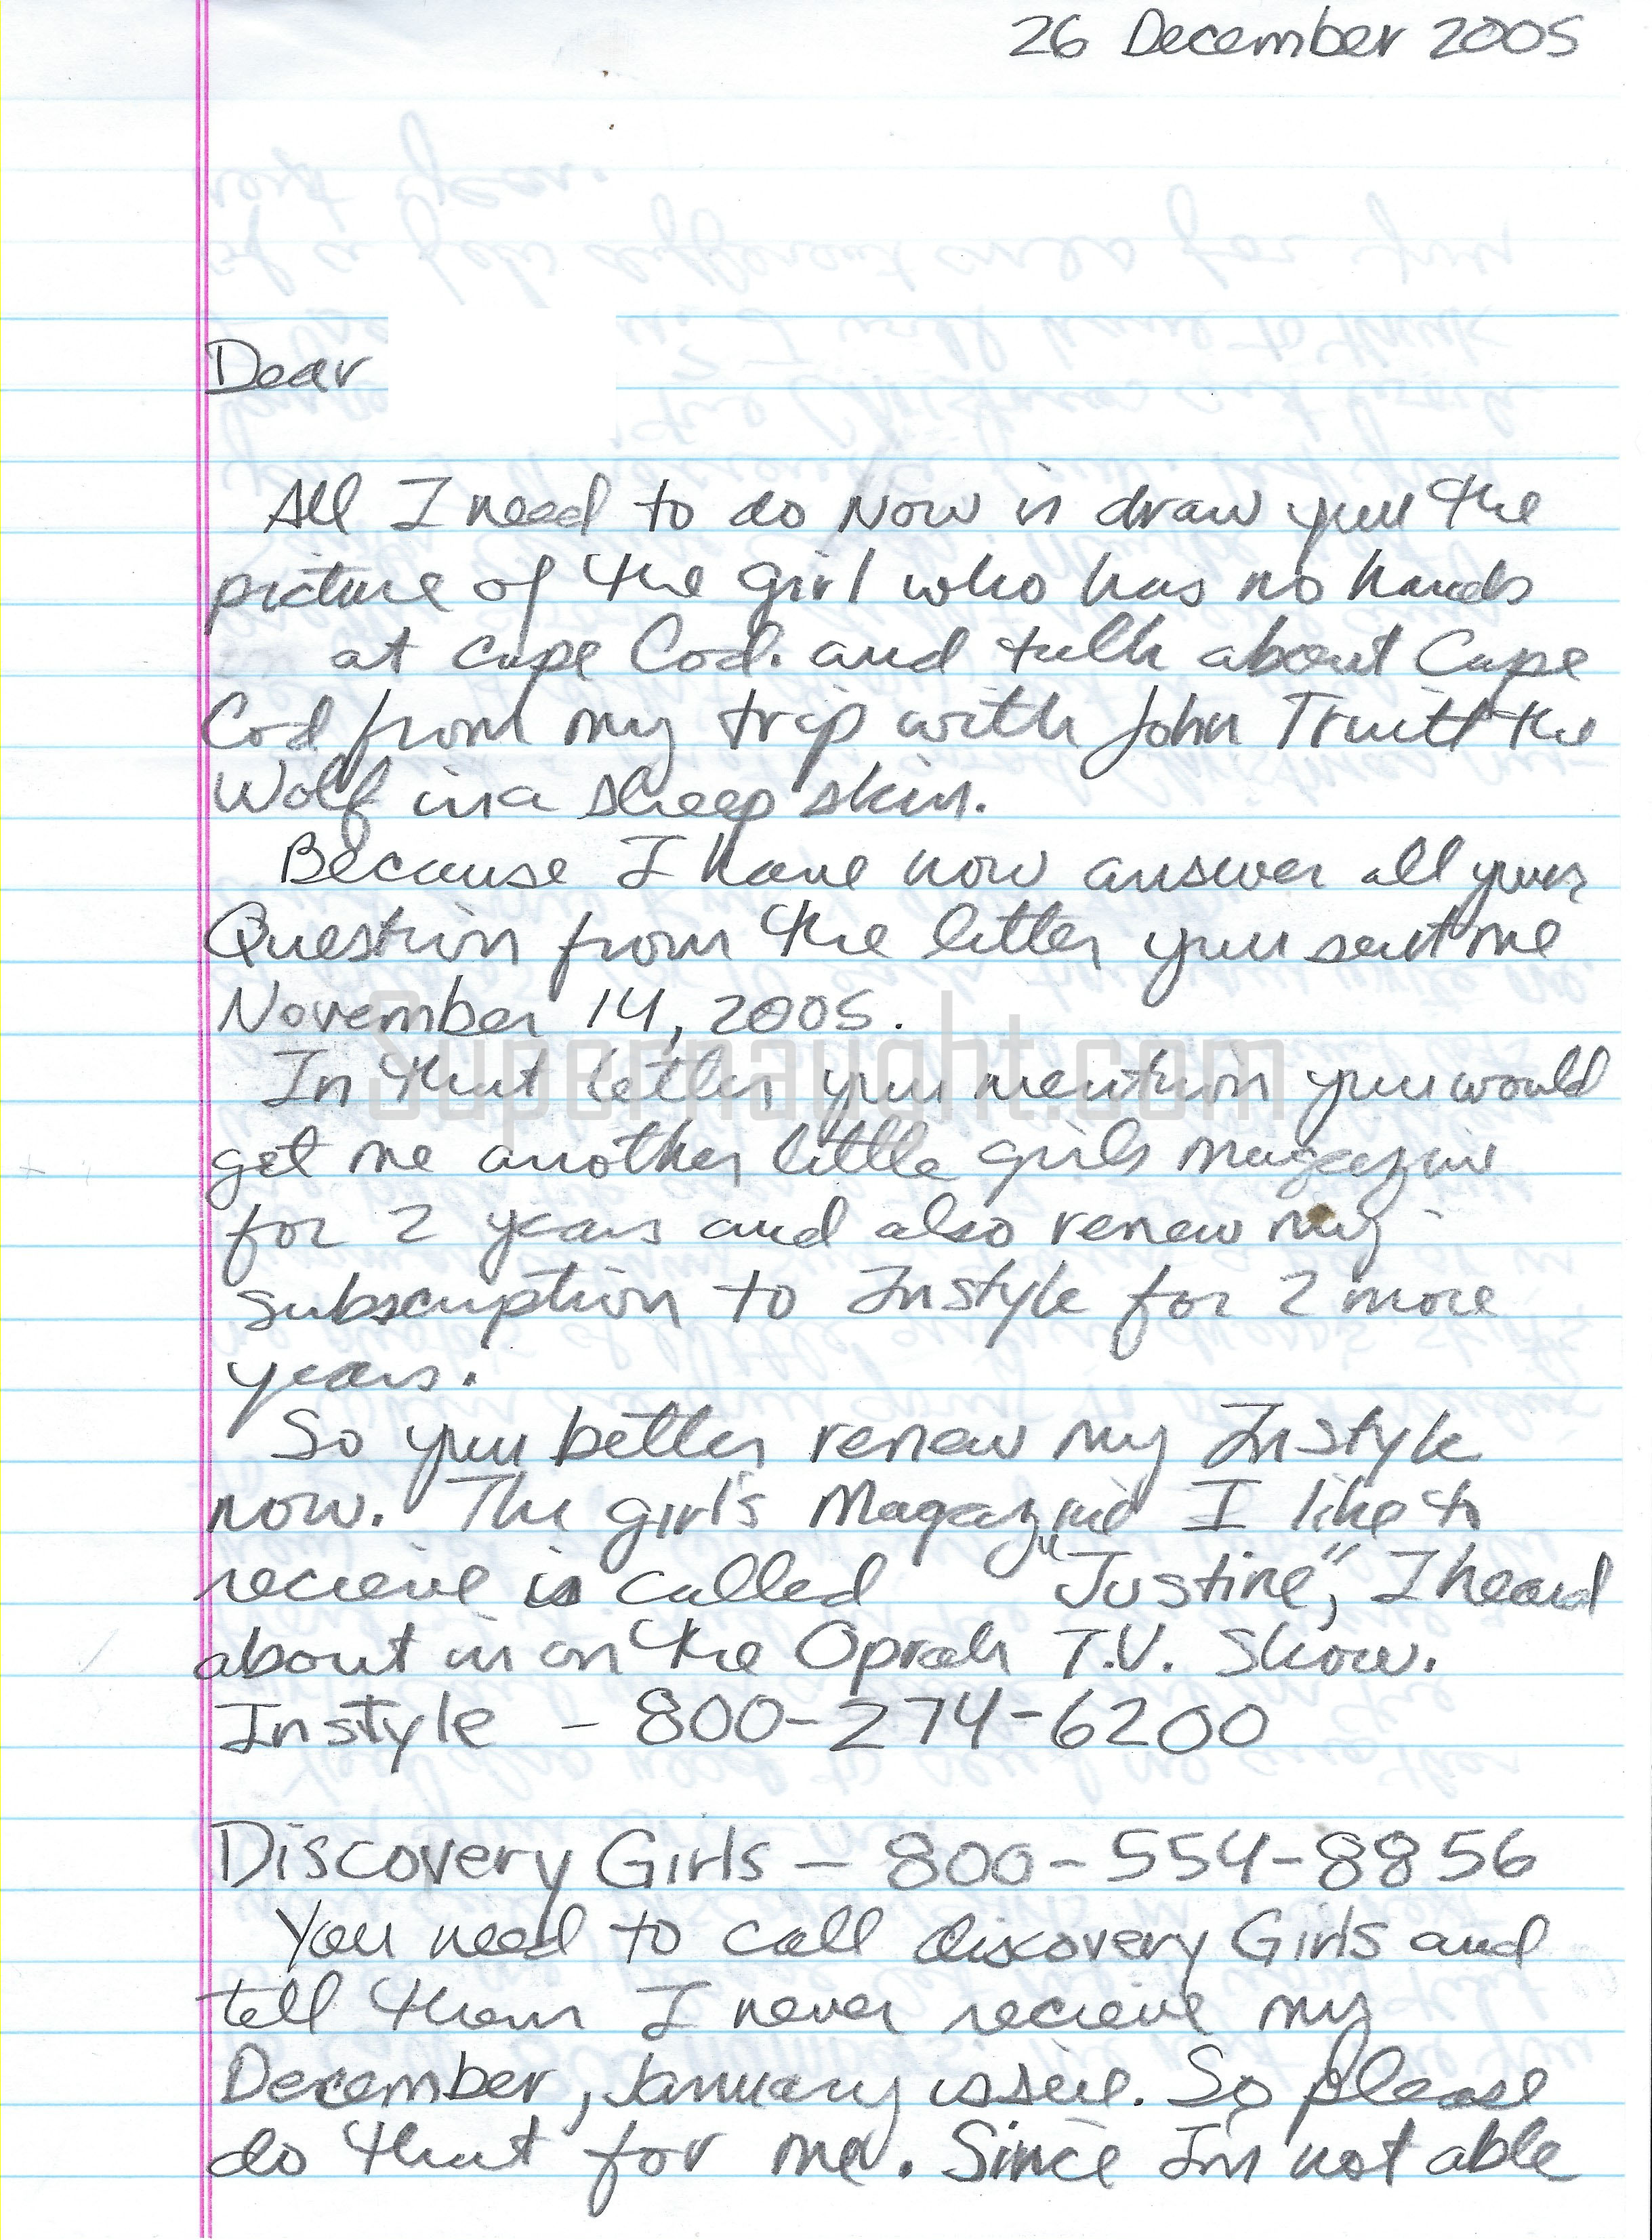 26 December 2005
Dear
All I need to do Now is draw you the
picture of the girl who has no hands
at cape Cod. and talk about Cape
Cod from my trip with John Truitt the
Wolf in a sheep skin.
Because I have now answer all your
Question from the letter you sent me
November 14, 2005.
Supernaught.com
In that letter you mention you would
get me another little girls magazine
for 2 years and also renew my
subscription to Instyle for 2 more
years.
So you better renew my Instyle
now. The girl's Magazine I like to
recieve is called "Justine", I heard
about in on the Oprah T.V. Show.
Instyle - 800-274-6200
Discovery Girls - 800-554-8856
You need to call discovery Girls and
tell them I never recieve my
December, January issue. So please
do that for me. Since I'm not able